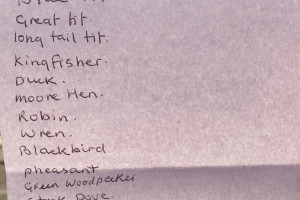 Great tit.
long tail tit.
Kingfisher.
Duck.
moore Hen.
Robin.
Wren.
Blackbird
pheasant
Green Woodpecker
Dove.